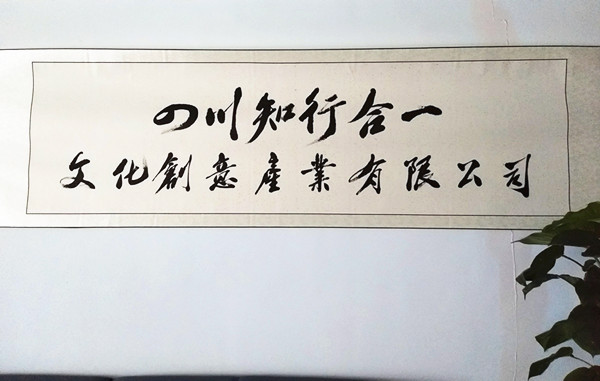 四川知行合一
文化創意產業有限公司